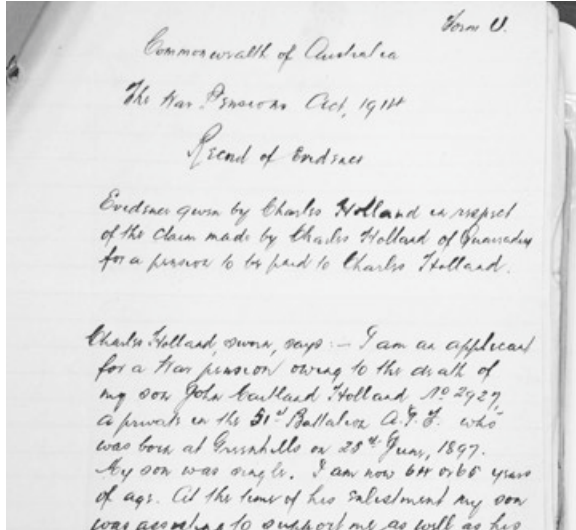 Form U.
Commonwealth of Australia
The War Pensions Act, 1914
Record of Evidence
Evidence given by Charles Holland in respect
of the claim made by Charles Holland of
for a pension to be paid to Charles Holland.
Charles Holland, sworn, says :— I am an applicant
for a War pension owing to the death of
my son John Holland No 2927,
a private in the 51st Battalion A.I.F. who
was born at Greenhills on 28th June, 1897.
My son was single. I am now 64 or 65 years
of age. At the time of his enlistment my son
was assisting to support me as well as his